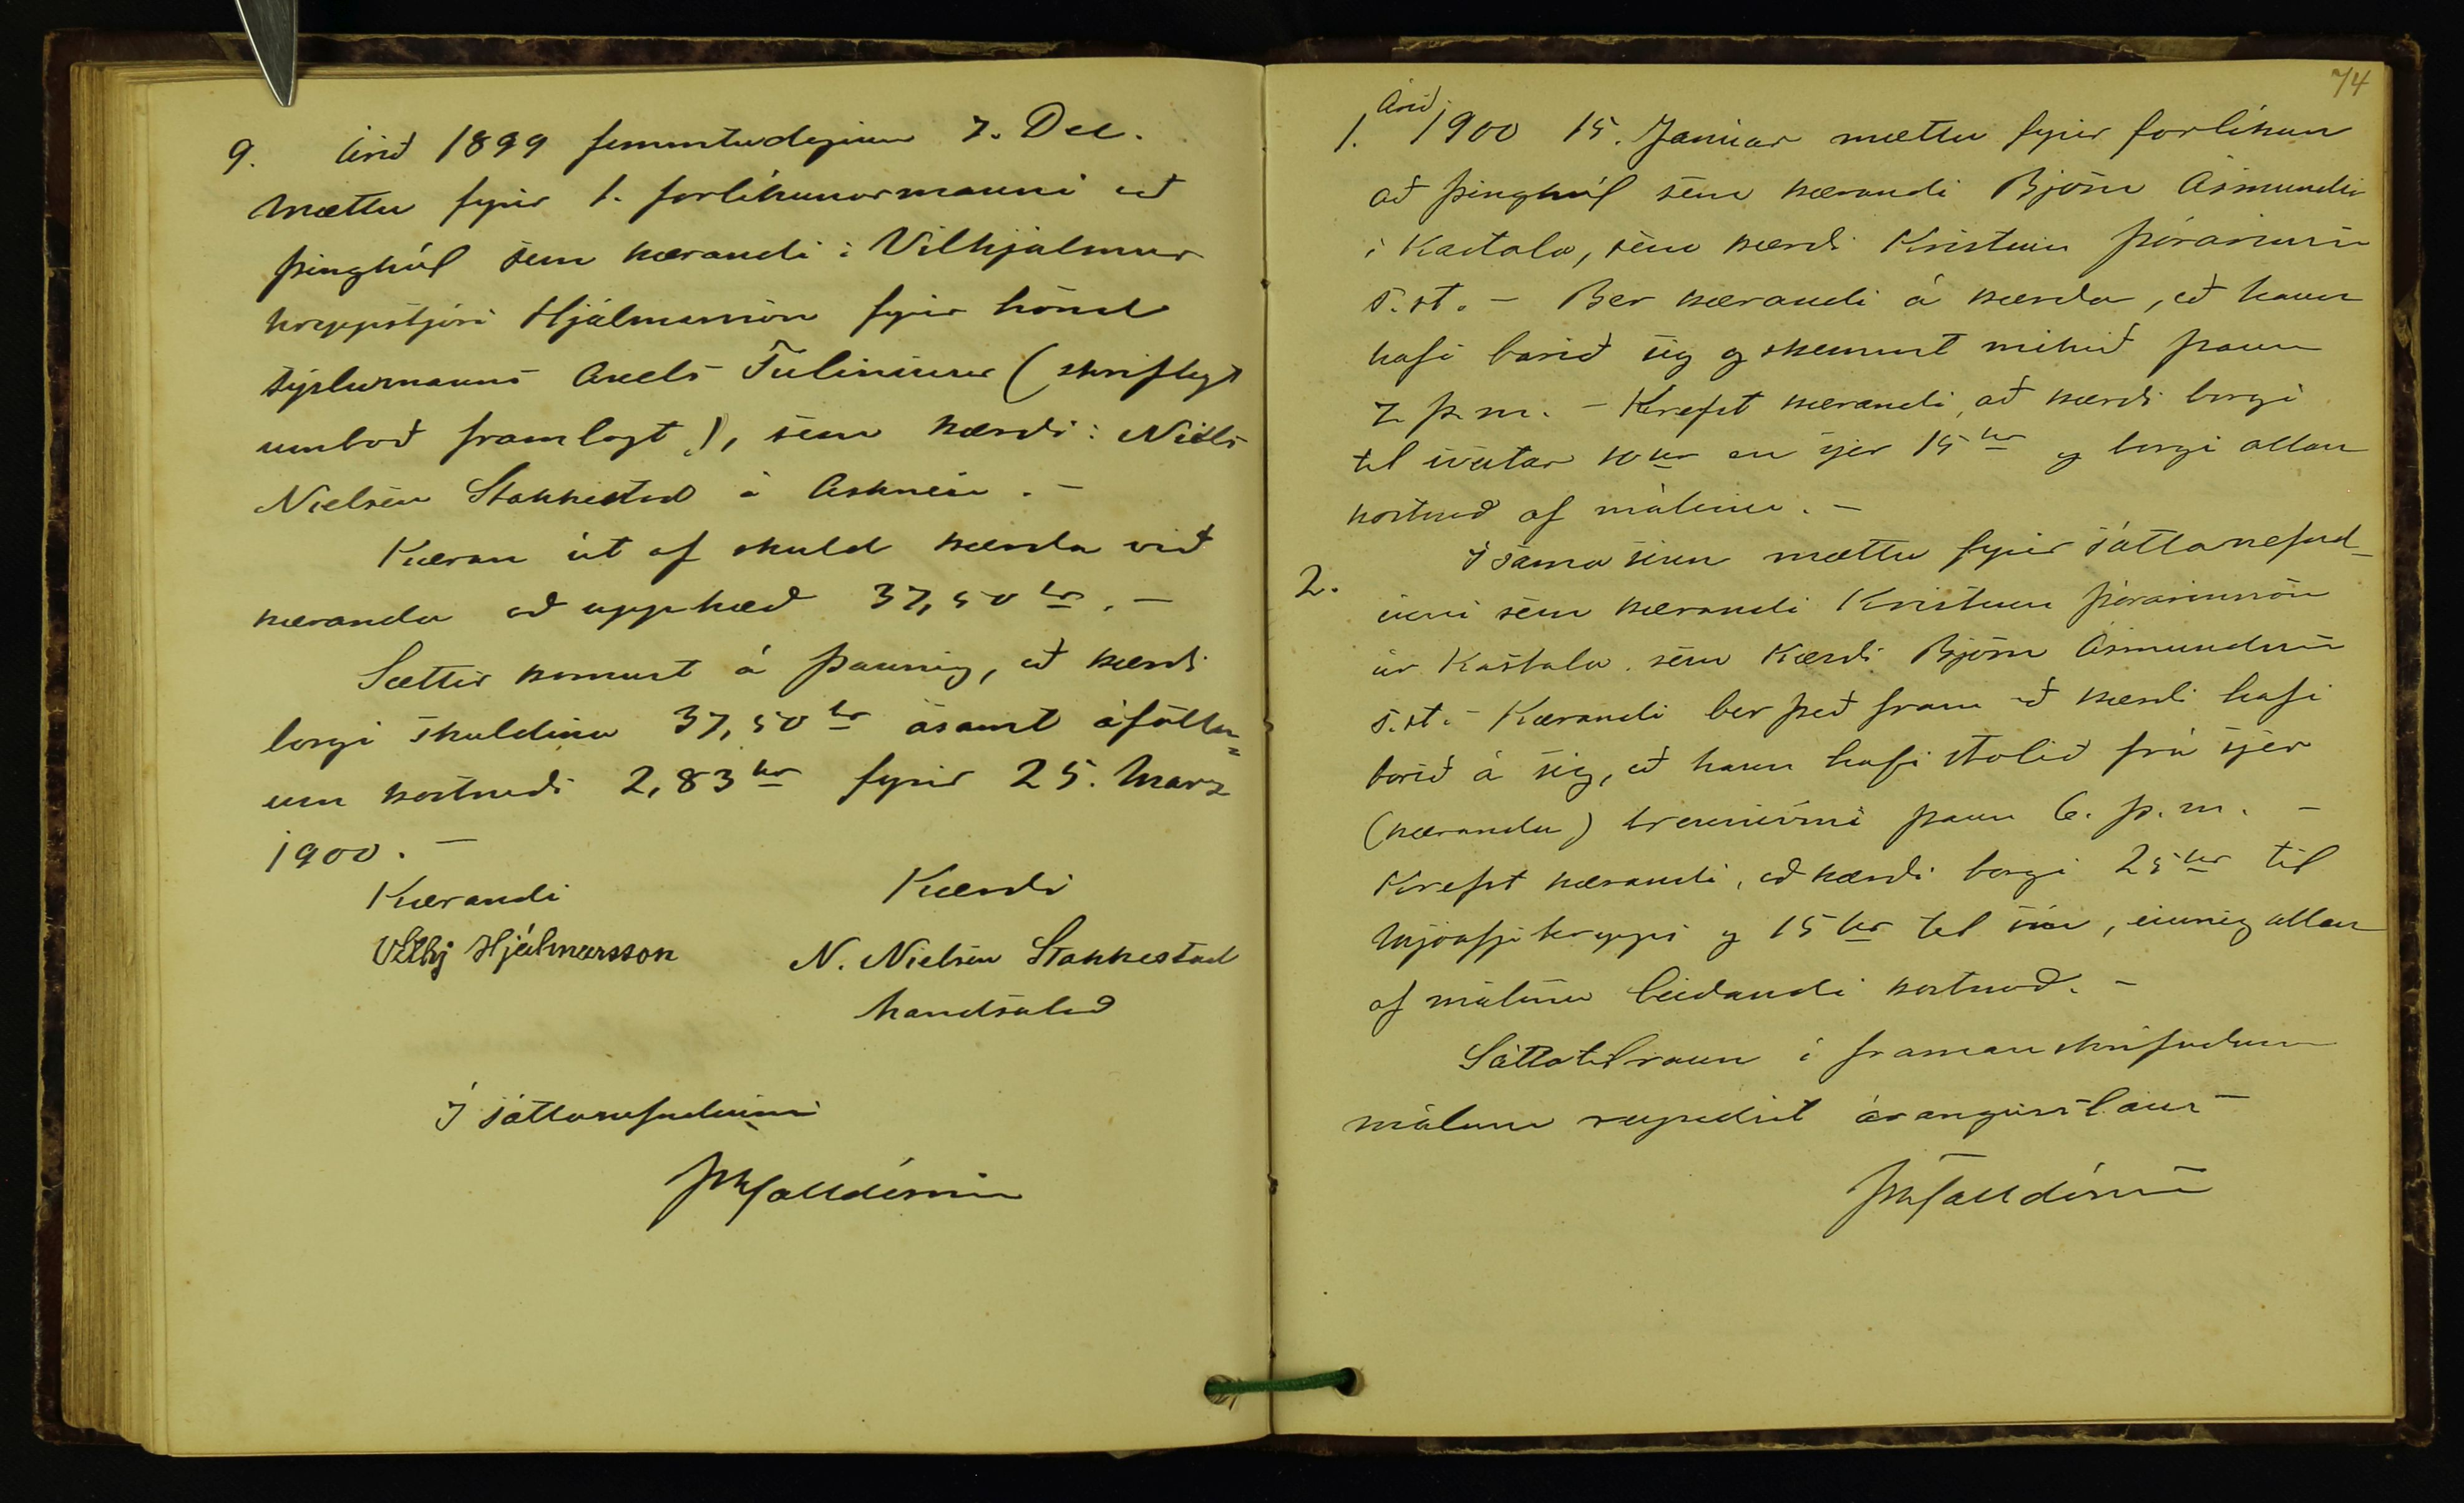 9. Árið 1899 fimmtudaginn 7. Dec.
mættu fyrir 1. forlíkunarmanni að
Þinghól sem kærandi: Vilhjálmur
hreppstjóri Hjálmarsson fyrir hönd
sýslumanns Axels Tulinius (skriflegt
umboð framlagt), sem kærði: Niels
Nielsen Stakkestad á Asknesi. –
Kæran út af skuld kærða við
kæranda að upphæð 37,50 kr. –
Sættir komust á þannig, að kærði
borgi skuldina 37,50 kr ásamt áfölln=
um kostnaði 2,83 kr fyrir 25. Marz
1900. –
Kærandi Kærði
Vilhj Hjálmarsson N. Nielsen Stakkestad
handsalað
Í sáttanefndinni
74
1. Árið 1900 15. Januar mættu fyrir forlíkun
að Þinghól sem kærandi Björn Ásmundss
í Kastala, sem kærði Kristinn Þórarinsson
s.st. – Ber kærandi á kærða, að hann
hafi barið sig og skemmt mikið þann
7. þ.m. – Krefst kærandi, að kærði borgi
til sveitar 10 kr en sjer 15 kr og borgi allan
kostnað af málinu. –
2. Í sama sinn mættu fyrir sáttanefnd_
inni sem kærandi Kristinn Þórarinsson
úr Kastala. sem Kærði Björn Ásmundsson
s.st. – Kærandi ber það fram að kærði hafi
borið á sig, að hann hafi stolið frá sjer
(kæranda) brennivíni þann 6. þ.m. –
Krefst kærandi, að kærði borgi 25 kr til
Mjóafj.hrepps og 15 kr til sín, einnig allan
af málinu leiðandi kostnað. –
Sáttatilraun í framanskrifuðum
málum reyndist árangurslaus –